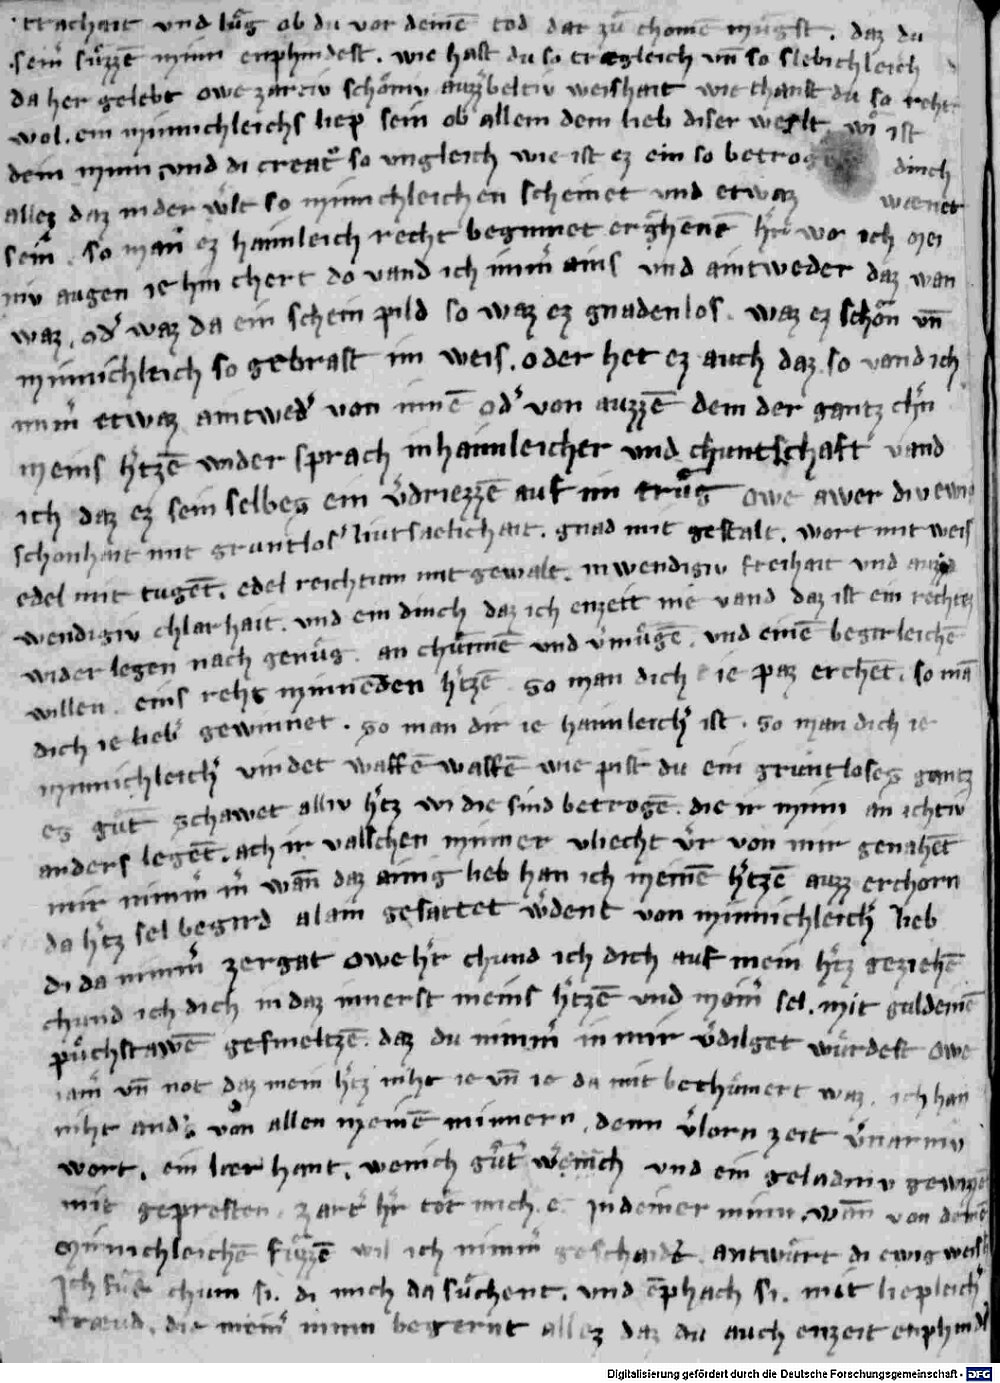 trachait vnd lůg ob du vor deinē tod dar zů chomē můgst . daz du
sein͛ sůzzē minn enphindest . wie hast du so træglich vn̄ so slebichleich
da her gelebt owe zartiv schöniv auzz͛beltiv weishait wie chanst du so reht
wol . ein minnichleichs liep sein ob allem dem lieb diser werlt wi͛ ist
dein minn vnd di creat͛ so vngleich wie ist ez ein so betrog dinch
allez daz in der w͛lt so minnichleichen scheinet vnd etwaz wænet
sein . so man ez haimleich recht beginnet erchēnē h͛r wo ich mei
niv augen ie hin chert do vand ich nim͛ ains vnd aintweder daz wan
waz . od͛ waz da ein schein pild so waz ez gnadenlos . waz ez schön vn̄
minnichleich so gebrast im weis . oder het ez auch daz so vand ich
nim͛ etwaz aintwed͛ von innē od͛ von auzzē dem der gantz ch͛n
meins h͛tzē wider sprach in haimleicher vnd chuntschaft vand
ich daz ez sein selbes ein v͛driezzē auf im trůg owe awer div ewig
schonhait mit gruntlos͛ liutsaelichait . gnad mit gestalt . wort mit weis
edel mit tugēt . edel reichtum mit gewalt . inwendigiv freihait vnd auzz
wendigiv chlarhait . vnd ein dinch daz ich enzeit nie vand daz ist ein rechtez
widerlegen nach genůg . an chunnē vnd v͛můgē . vnd einē begirleichē
willen . eins rehs minnēden h͛tzē so man dich ie paz erchēt . so mā
dich ie lieb͛ gewinnet . so man dir ie haimleich͛ ist . so man dich ie
minnichleich͛ vindet waffē waffē wie pist du ein gruntloses gantz
es gůt schawet alliv h͛tz wi die sind betrogē . die ir minn an ichtiv
anders legēt . ach ir valschen minner vliecht v͛r von mir genahēt
mir nimm͛ m͛ wan̄ daz ainig lieb han ich meinē h͛tzē auzz erchorn
da h͛tz sel begird alain gesattet w͛dent von minnichleich͛ lieb
di da nimm͛ zergat owe h͛r chund ich dich auf mein h͛tz geziehē
chund ich dich in daz innerst meins h͛tzē vnd mein͛ sel . mit guldeinē
půchstawē gesmeltzē . daz du nimm͛ in mir v͛dilget würdest owe
iam͛ vn̄ not daz mein h͛tz niht ie vn̄ ie da mit bechümert waz . ich han
niht and͛s von allen meinē minnern . denn v͛lorn zeit v͛narniv
wort . ein lær hant . wenich gůt͛ w͛ich vnd ein geladniv gewizē
mit gepresten . zart͛ h͛r töt mich e in deiner minn . wan̄ von deinē
minnichleichē fůzzē wil ich nimm͛ geschaidē . antwürt di ewig weish
Ich chum si . di mich da sůchent . vnd ēphach si . mit liepleich͛
fræud . die mein͛ minn begernt allez daz du auch enzeit enphind͛
Digitalisierung gefördert durch die Deutsche Forschungsgemeinschaft - DFG